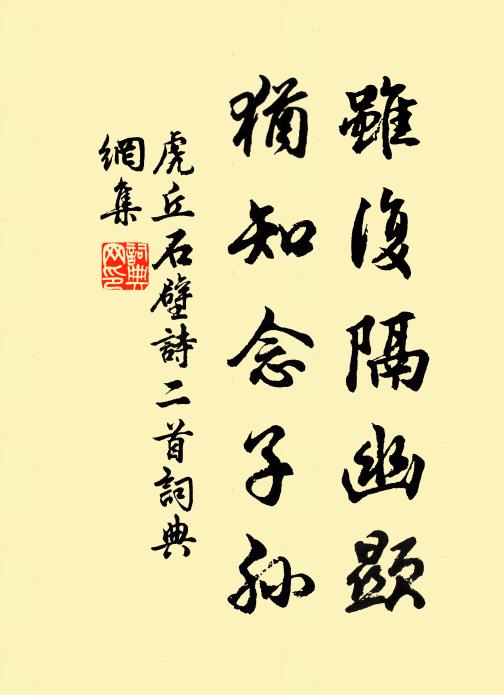 雖復隔幽顯
猶知念子孫
虎丘石壁詩二首詞典
網集
詞典网印